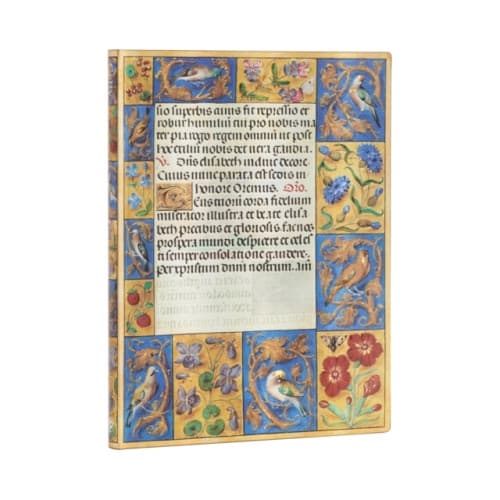 sio superbis cuius fit repressio et
robur humilium tu pro nobis ma
ter pia rogo regem omnium ut post
hoc exilium nobis det vera gaudia.
V. Dns elisabeth induit decore.
Cuius nunc parata est sedis in
honore Oremus. Oro.
corda fidelium
miserator illustra et beate elisa
beth precibus et gloriosis fac nos
prospera mundi despicere et celes
ti semper consolatione gaudere.
Per xpristum dnm nostrum. am